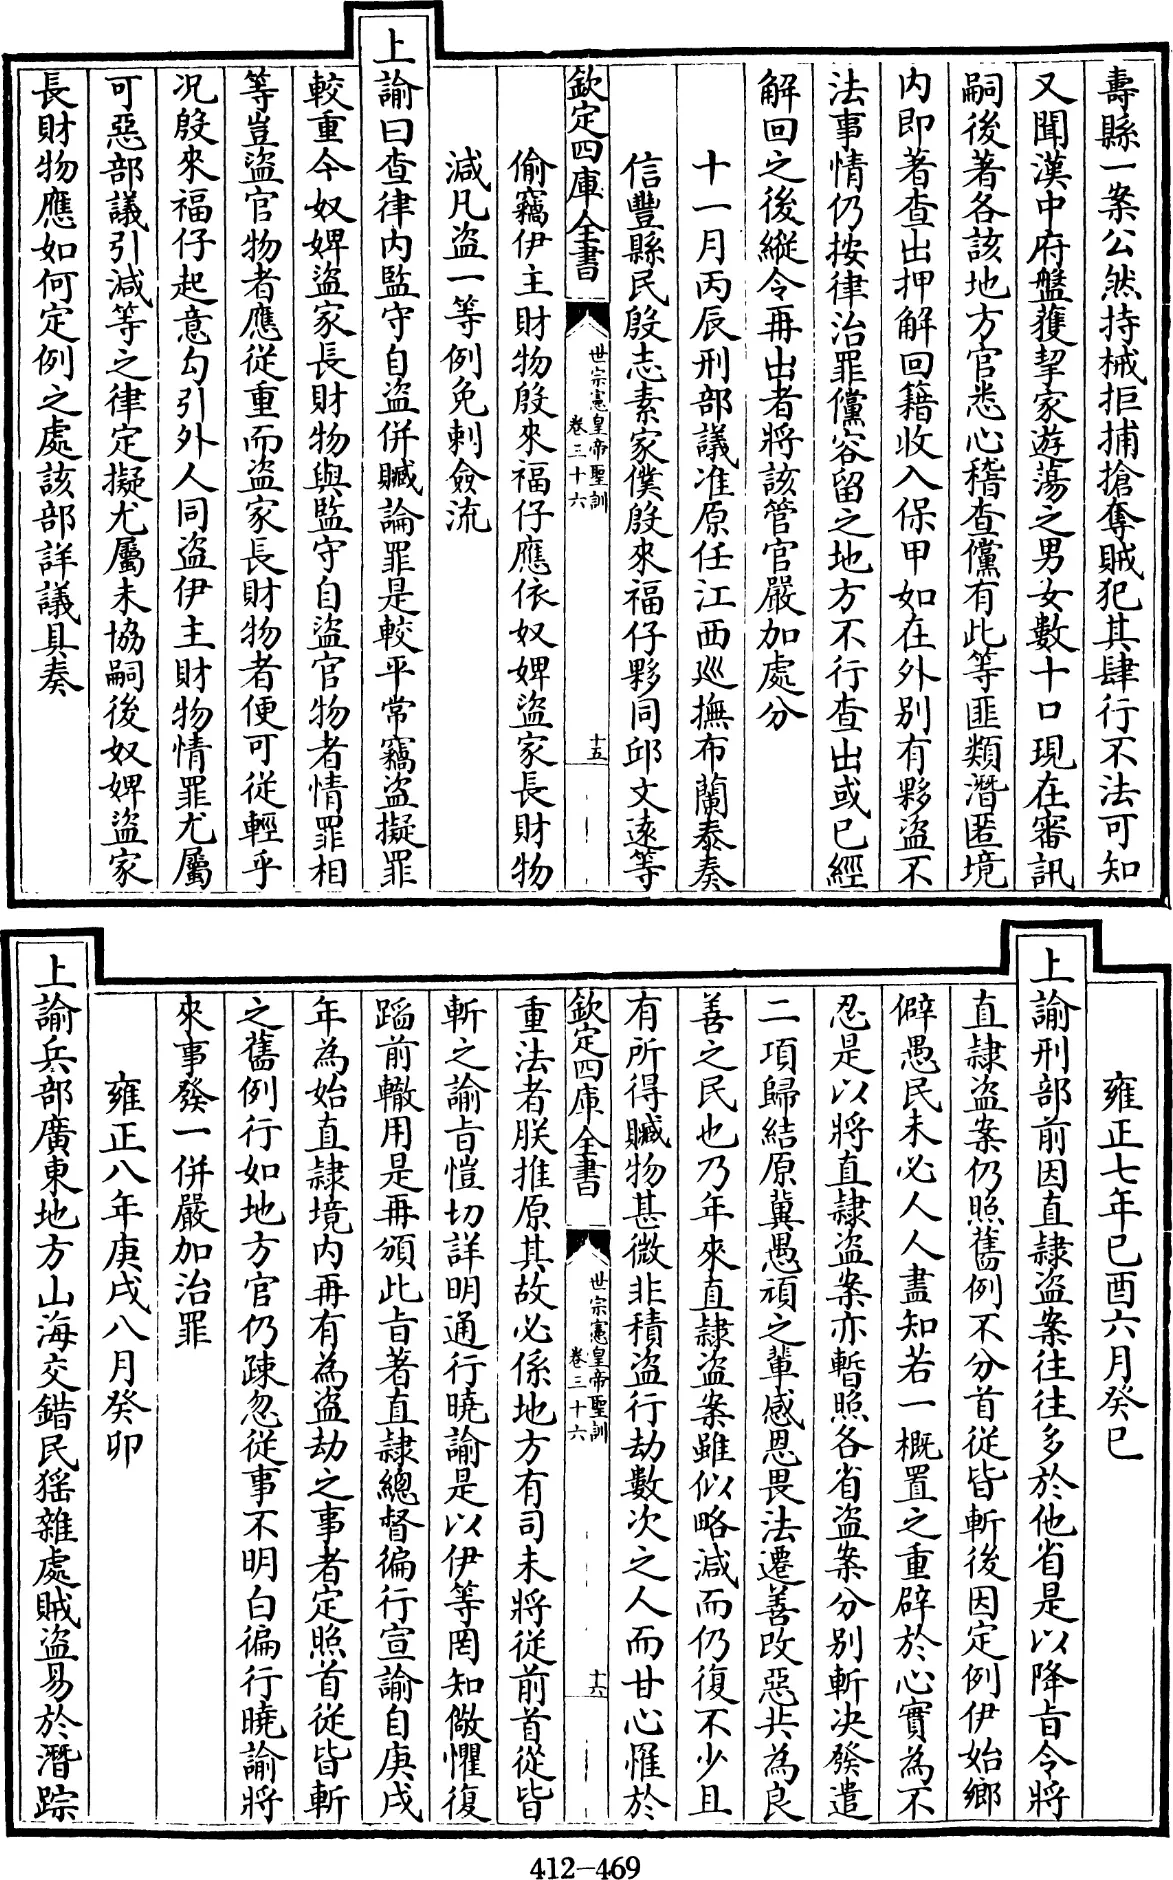 壽縣一案公然持械拒捕搶奪賊犯其肆行不法可知
又聞漢中府盤獲挈家遊蕩之男女數十口現在審訊
嗣後著各該地方官悉心稽查儻有此等匪類潛匿境
内即著查出押解回籍收入保甲如在外别有夥盜不
法事情仍按律治罪儻容留之地方不行查出或已經
解回之後縱令再出者將該管官嚴加處分
十一月丙辰刑部議准原任江西巡撫布蘭泰奏
信豐縣民殷志素家僕殷來福仔夥同邱文遠等
欽定四庫全書
世宗憲皇帝聖訓
卷三十六
十五
偷竊伊主財物殷來福仔應依奴婢盜家長財物
減凡盜一等例免刺僉流
上諭曰查律内監守自盜併贓論罪是較平常竊盜擬罪
較重今奴婢盜家長財物與監守自盜官物者情罪相
等豈盜官物者應從重而盜家長財物者便可從輕乎
况殷來福仔起意勾引外人同盜伊主財物情罪尤屬
可惡部議引減等之律定擬尤屬未協嗣後奴婢盜家
長財物應如何定例之處該部詳議具奏
雍正七年己酉六月癸巳
上諭刑部前因直隸盜案往往多於他省是以降旨令將
直隸盜案仍照舊例不分首從皆斬後因定例伊始鄉
僻愚民未必人人盡知若一概置之重辟於心實為不
忍是以將直隸盜案亦暫照各省盜案分别斬决發遣
二項歸結原冀愚頑之輩感恩畏法遷善改惡共為良
善之民也乃年來直隸盜案雖似略減而仍復不少且
有所得贓物甚微非積盜行劫數次之人而甘心罹於
欽定四庫全書
世宗憲皇帝聖訓
卷三十六
十六
重法者朕推原其故必係地方有司未將從前首從皆
斬之諭旨愷切詳明通行曉諭是以伊等罔知儆懼復
蹈前轍用是再頒此旨著直隸總督徧行宣諭自庚戌
年為始直隸境内再有為盜劫之事者定照首從皆斬
之舊例行如地方官仍疎忽從事不明白徧行曉諭將
來事發一併嚴加治罪
雍正八年庚戌八月癸卯
上諭兵部廣東地方山海交錯民猺雜處賊盜易於潛踪
412-469